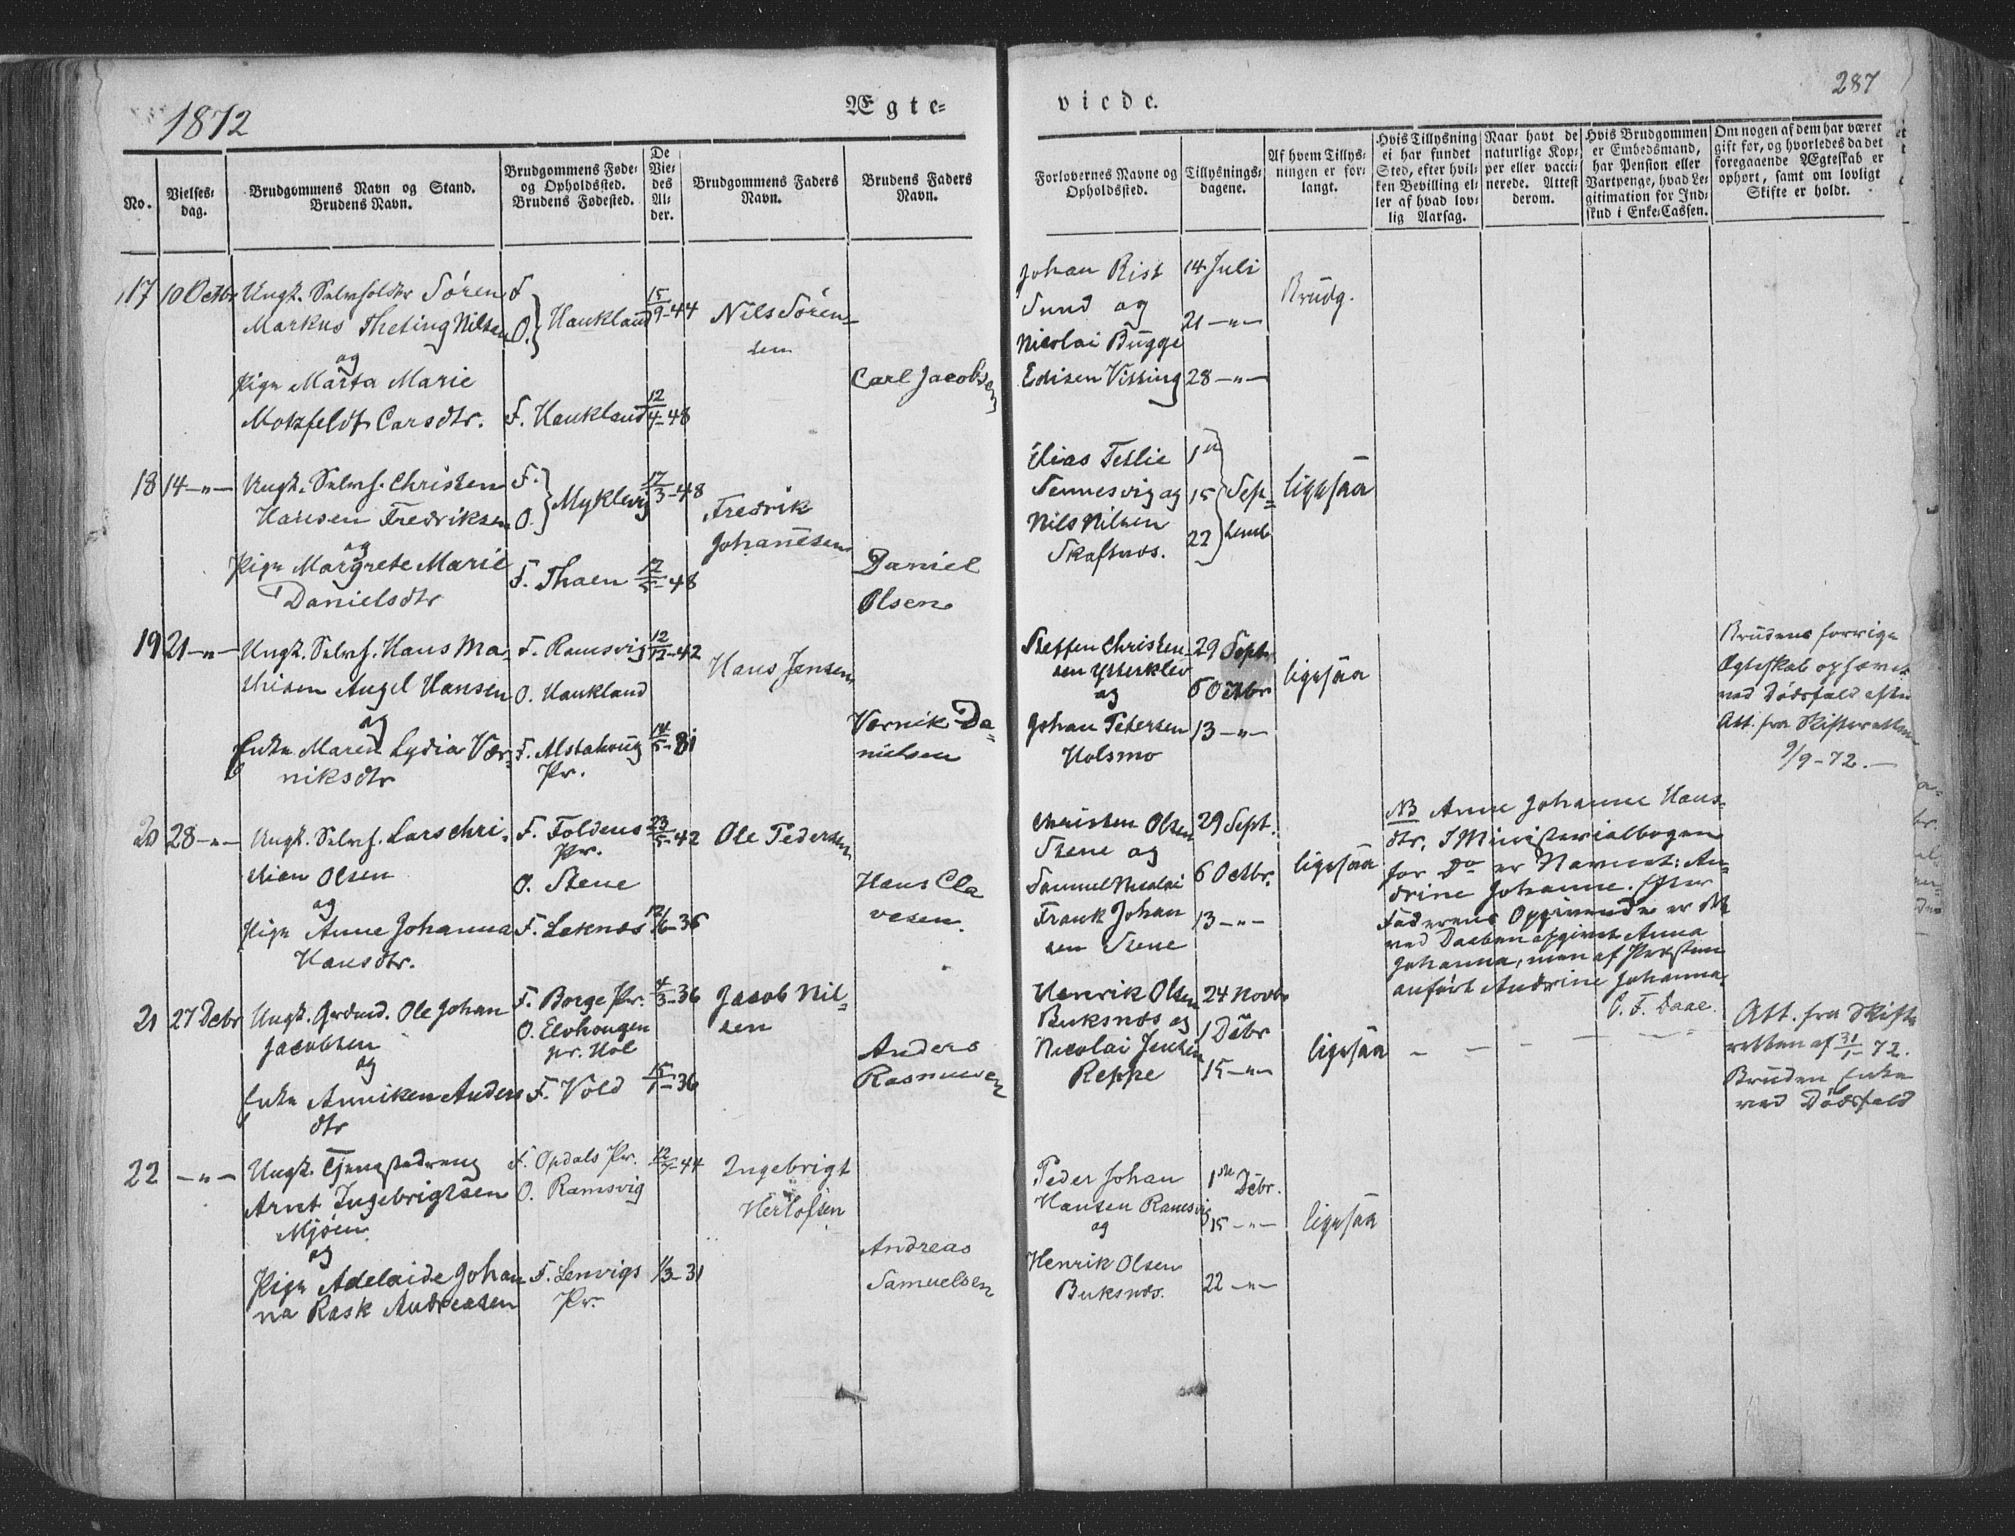 1872
Ægte=
viede.
287
No.
Vielses=
dag.
Brudgommens Navn og Stand.
Brudens Navn.
Brudgommens Føde=
og Opholdssted.
Brudens Fødested.
De
Vie=
des
Al=
der.
Brudgommens Faders
Navn.
Brudens Faders
Navn.
Forlovernes Navne og
Opholdssted.
Tillysnings=
dagene.
Af hvem Tillys=
ningen er for=
langt.
Hvis Tillysning
ei har fundet
Sted, efter hvil=
ken Bevilling el=
ler af hvad lov=
lig Aarsag.
Naar havt de
naturlige Kop=
per eller vacci=
nerede. Attest
derom.
Hvis Brudgommen
er Embedsmand,
har Pension eller
Vartpenge, hvad Le=
gitimation for Ind=
skud i Enke=Cassen.
Om nogen af dem har været
gift før, og hvorledes da det
foregaaende Ægteskab er
ophørt, samt om lovligt
Skifte er holdt.
17 10 Octbr Ungk. Søren
Markus Theting Nilsen
og
Pige Marta Marie
Motzfeldt Carsdtr.
F.
O. } Haukland
F. Haukland
15/9-44
12/4-48
Nils Sören=
sen
Carl Jacobsen
Johan Rist
Sund og
Nicolai Bugge
Edisen Vitting
14 Juli
21 -"-
28 -"-
Brudg.
18 14 -"- Ungk. Selvf. Christen
Hansen Fredriksen
og
Pige Margrete Marie
Danielsdtr
F.
O. } Myklevig
F. Thaen
17/3-48
17/5-48
Fredrik
Johannesen
Daniel
Olsen
Elias Tellie
Sennesvig og
Nils Nilsen
Skaftnæs.
15
22
Sep=
temb
ligesaa
19 21 -"- Ungk. Selvf. Hans Ma=
thisen Angel Hansen
og
Enke Maren Lydia Vær=
niksdtr
F. Ramsvig
O. Haukland
F. Alstahoug
Pr.
12/12-42
Hans Jensen
Værnik Da=
nielsen
Steffen Christen=
sen Ytterklev
og
Johan Petersen
Holsmo
29 Septr
6 Octbr
13 -"-
ligesaa
Brudens forrige
Ægteskab ophævet
ved Dødsfald efter
Att. fra Skifteretten
9/9-72.
20 28 -"- Ungk. Selvf. Lars Chri=
stian Olsen
og
Pige Anne Johanna
Hansdtr.
F. Foldens
Pr.
O. Stene
F. Leknæs
23/5-42
12/6-36
Ole Pedersen
Hans Cla
vesen.
Christen Olsen
Stene og
Samuel Nicolai
Frank Johan
sen Stene
29 Sept.
6 Octbr.
13 -"-
ligesaa
NB Anne Johanne Hans=
dtr. I Ministerialbogen
for Do er Navnet: An=
drine Johanne. Efter
Faderens Opgivende er det
ved Daaben opgivet Anna
Johanna, men af Præsten
anført Andrine Johanna.
O. F. Daae.
21 27 Debr Ungk. Ole Johan
Jacobsen
og
Enke Anniken Anders
dtr
F. Borge Pr.
O. Elvhougen
pr. Hol
F. Vold
4/3-36
15/1-36
Jacob Nil=
sen
Anders
Rasmussen
Henrik Olsen
Buksnæs og
Nicolai Jensen
Reppe
24 Novbr
1 Debr
15 -"-
ligesaa
Att. fra Skifte
retten af 31/1-72.
Bruden Enke
ved Dødsfald
22 -"- Ungk. Tjenestedreng
Arnt Ingebrigtsen
Mjöen
og
Pige Adelaide Johan
na Rask Andreasen
F. Opdals Pr.
O. Ramsvig
F. Lenvigs
Pr.
1/3-31
Ingebrigt
Herlofsen
Andreas
Samuelsen
Peder Johan
Hansen Ramsvig
og
Henrik Olsen
Buksnæs.
1ste Debr.
15 -"-
22 -"-
ligesaa